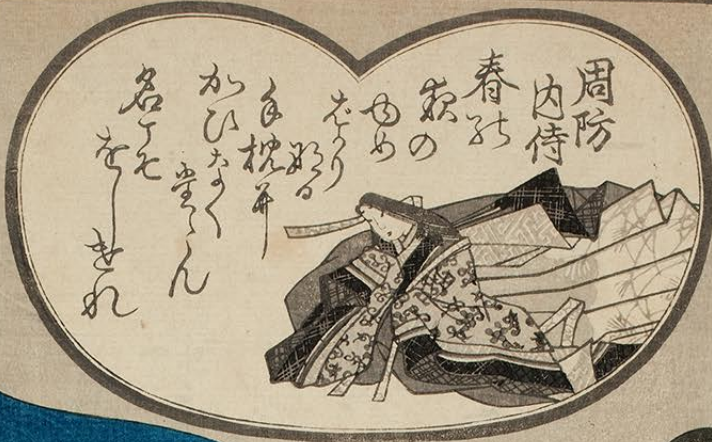 周防
内侍
春の
夜の
ゆめ
ばかり
なる
手枕に
かひなく
たゝん
名こそ
をしけれ